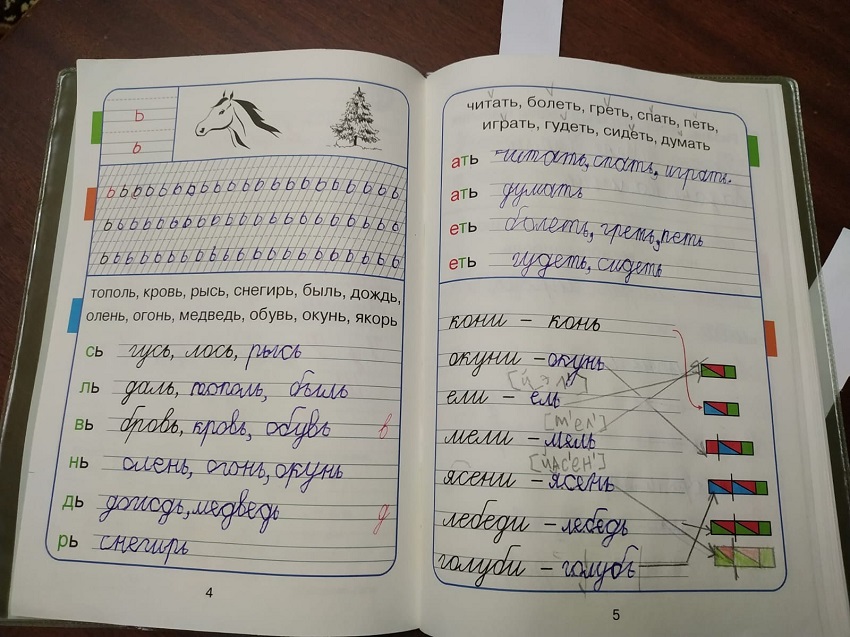 ь
ь
ь ь ь ь ь ь ь ь ь ь ь ь ь ь ь ь ь ь ь ь ь ь ь
ь ь ь ь ь ь ь ь ь ь ь ь ь ь ь ь ь ь ь ь ь ь ь
ь ь ь ь ь ь ь ь ь ь ь ь ь ь ь ь ь ь ь ь ь ь ь
тополь, кровь, рысь, снегирь, быль, дождь,
олень, огонь, медведь, обувь, окунь, якорь
сь гусь, лось, рысь
ль даль, тополь, быль
вь бровь, кровь, обувь в
нь олень, огонь, окунь
дь дождь, медведь д
рь снегирь
4
читать, болеть, греть, спать, петь,
играть, гудеть, сидеть, думать
ать читать, спать, играть.
ать думать
еть болеть, греть, петь
еть гудеть, сидеть
кони – конь
окуни – окунь
[й'эл']
ели – ель
[м'ел']
мели – мель
[йас'ен']
ясени – ясень
лебеди – лебедь
голуби – голубь
5